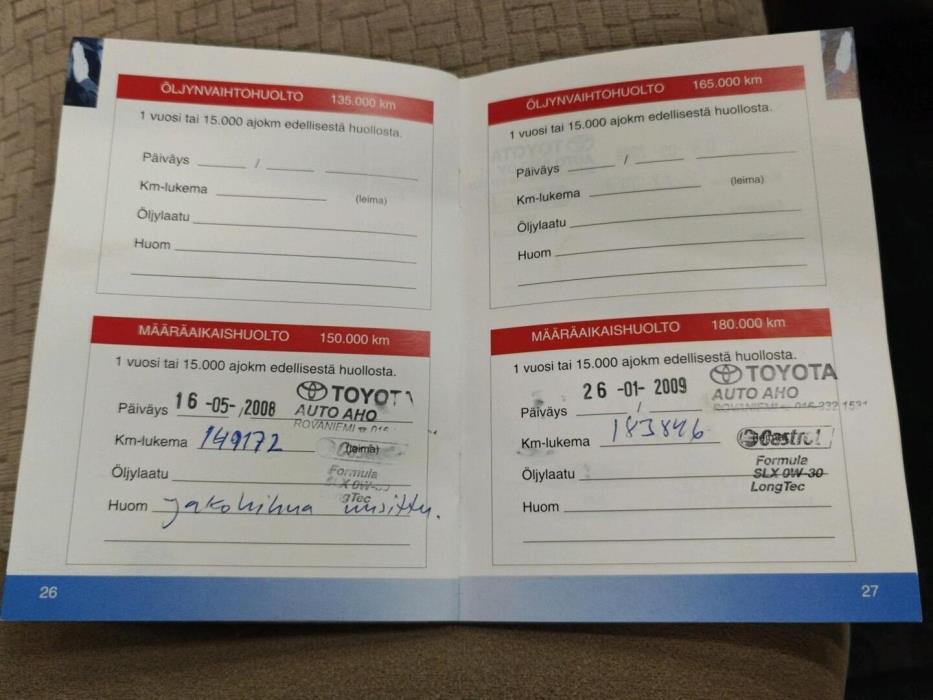 ÖLJYNVAIHTOHUOLTO 135.000 km
1 vuosi tai 15.000 ajokm edellisestä huollosta.
Päiväys / 
Km-lukema (leima)
Öljylaatu
Huom
MÄÄRÄAIKAISHUOLTO 150.000 km
1 vuosi tai 15.000 ajokm edellisestä huollosta.
TOYOTA
Päiväys 16 -05-/2008 AUTO AHO
ROVANIEMI ☎ 016
Km-lukema 149172
Castrol (leima)
Öljylaatu Formula
SLX 0W-30
LongTec
Huom jakohihna uusittu.
26
ÖLJYNVAIHTOHUOLTO 165.000 km
1 vuosi tai 15.000 ajokm edellisestä huollosta.
Päiväys /
Km-lukema (leima)
Öljylaatu
Huom
MÄÄRÄAIKAISHUOLTO 180.000 km
1 vuosi tai 15.000 ajokm edellisestä huollosta.
TOYOTA
26 -01- 2009 AUTO AHO
Päiväys / ROVANIEMI ☎ 016-332 1531
Km-lukema 183846 Castrol
Formula
Öljylaatu SLX 0W-30
LongTec
Huom
27